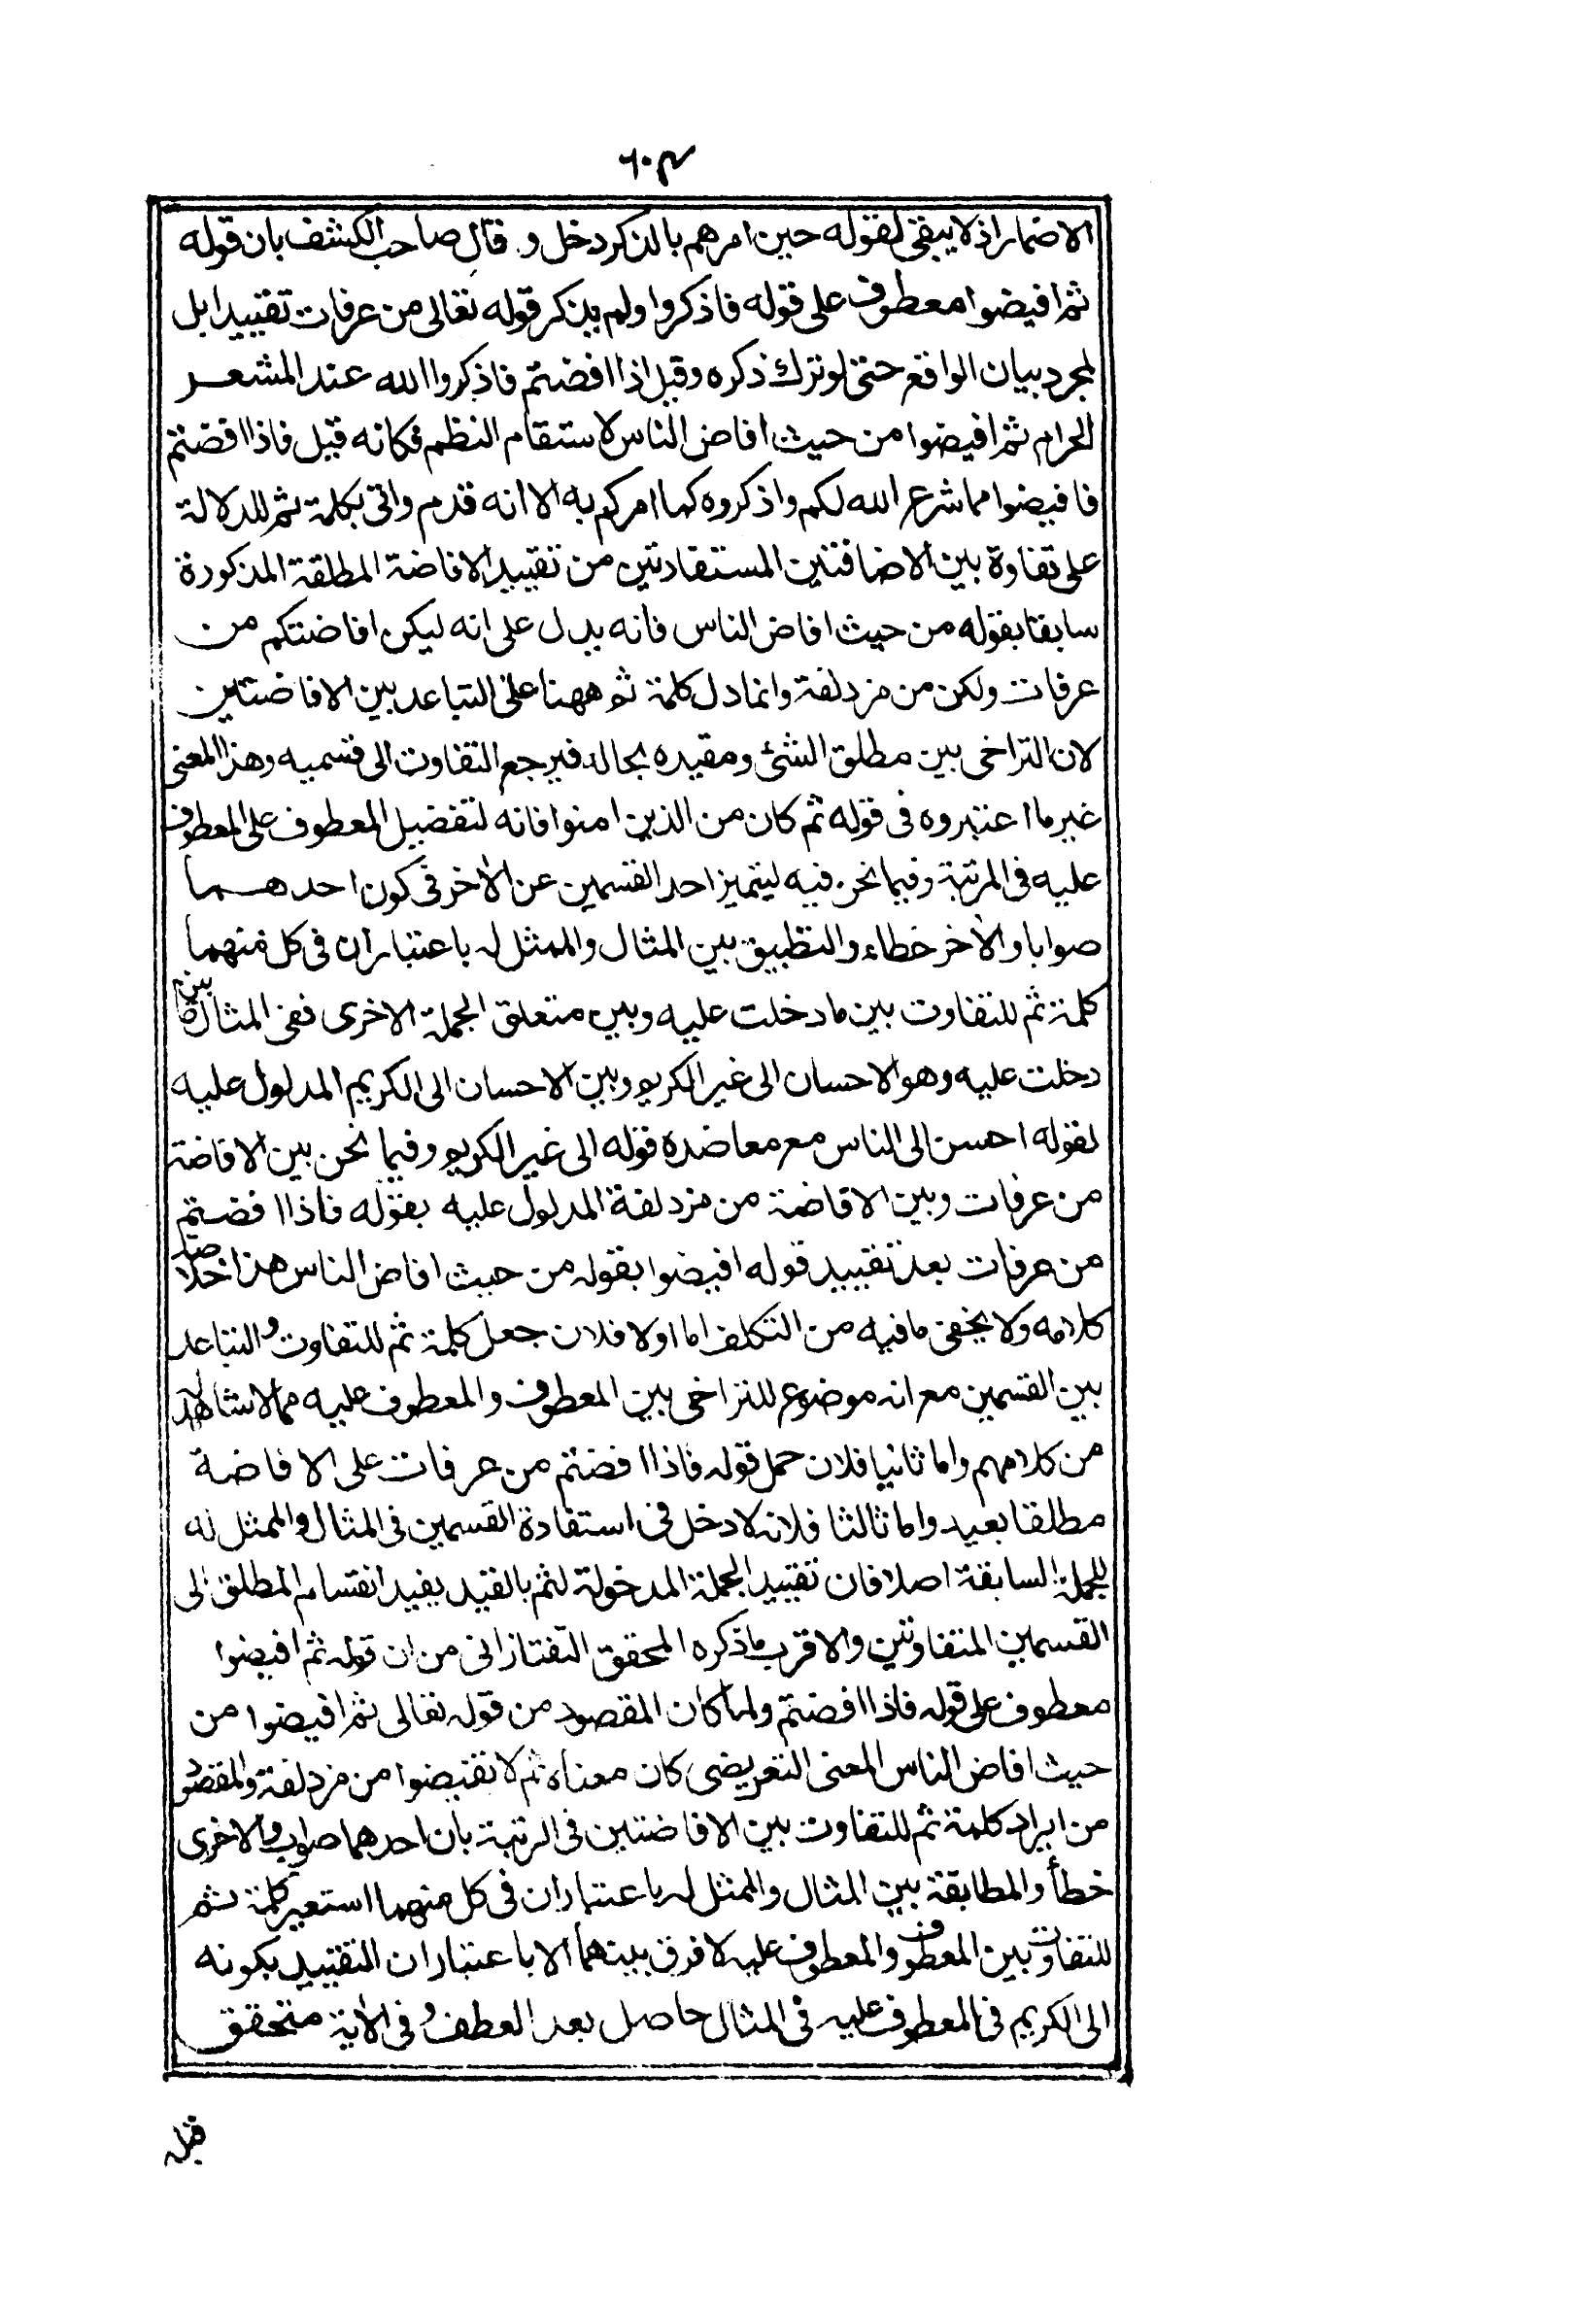 ٦٠٣
الاضمار اذ لا يبقى لقوله حين امرهم بالذكر دخل و. قال صاحب الكشف بان قوله
ثم افيضوا معطوف على قوله فاذكروا ولم يذكر قوله تعالى من عرفات تقييدا بل
لمجرد بيان الواقع حتى لو ترك ذكره وقيل اذا افضتم فاذكروا الله عند المشعر
الحرام ثم افيضوا من حيث افاض الناس لاستقام النظم فكانه قيل فاذا افضتم
فافيضوا مما شرع الله لكم واذكروه كما امركم به الا انه قدم واتى بكلمة ثم للدلالة
على تفاوة بين الاضافتين المستفادتين من تقييد الافاضة المطلقة المذكورة
سابقا بقوله من حيث افاض الناس فانه يدل على انه ليكن افاضتكم من
عرفات ولكن من مزدلفة وانما دل كلمة ثم ههنا على التباعد بين الافاضتين
لان التراخى بين مطلق الشئ ومقيده بحاله فيرجع التفاوت الى قسميه وهذا المعنى
غير ما اعتبروه فى قوله ثم كان من الذين امنوا فانه لتفضيل المعطوف على المعطوف
عليه فى المرتبة وفيما نحن فيه ليتميز احد القسمين عن الاخر فى كون احدهما
صوابا والاخر خطاء والتطبيق بين المثال والممثل له باعتبار ان فى كل منهما
كلمة ثم للتفاوت بين ما دخلت عليه وبين متعلق الجملة الاخرى ففى المثال بين ما
دخلت عليه وهو الاحسان الى غير الكريم وبين الاحسان الى الكريم المدلول عليه
لقوله احسن الى الناس مع معاضدة قوله الى غير الكريم وفيما نحن بين الافاضة
من عرفات وبين الافاضة من مزدلفة المدلول عليه بقوله فاذا افضتم
من عرفات بعد تقييد قوله افيضوا بقوله من حيث افاض الناس هذا خلاصة
كلامه ولا يخفى ما فيه من التكلف اما اولا فلان جعل كلمة ثم للتفاوت والتباعد
بين القسمين مع انه موضوع للتراخى بين المعطوف والمعطوف عليه مما لا شاهد له
من كلامهم واما ثانيا فلان حمل قوله فاذا افضتم من عرفات على الافاضة
مطلقا بعيد واما ثالثا فلانه لا دخل فى استفادة القسمين فى المثال والممثل له
للجملة السابقة اصلا فان تقييد الجملة المدخولة لثم بالقيد يفيد انقسام المطلق الى
القسمين المتفاوتين والاقرب ما ذكره المحقق التفتازانى من ان قوله ثم افيضوا
معطوف على قوله فاذا افضتم ولما كان المقصود من قوله تعالى ثم افيضوا من
حيث افاض الناس المعنى التعريضى كان معناه ثم لا تفيضوا من مزدلفة والمقصود
من ايراد كلمة ثم للتفاوت بين الافاضتين فى الرتبة بان احدهما صواب والاخرى
خطأ والمطابقة بين المثال والممثل له باعتبار ان فى كل منهما استعير كلمة ثم
للتفاوت بين المعطوف والمعطوف عليه لا فرق بينهما الا باعتبار ان التقييد بكونه
الى الكريم فى المعطوف عليه فى المثال حاصل بعد العطف وفى الاية متحقق
قبله